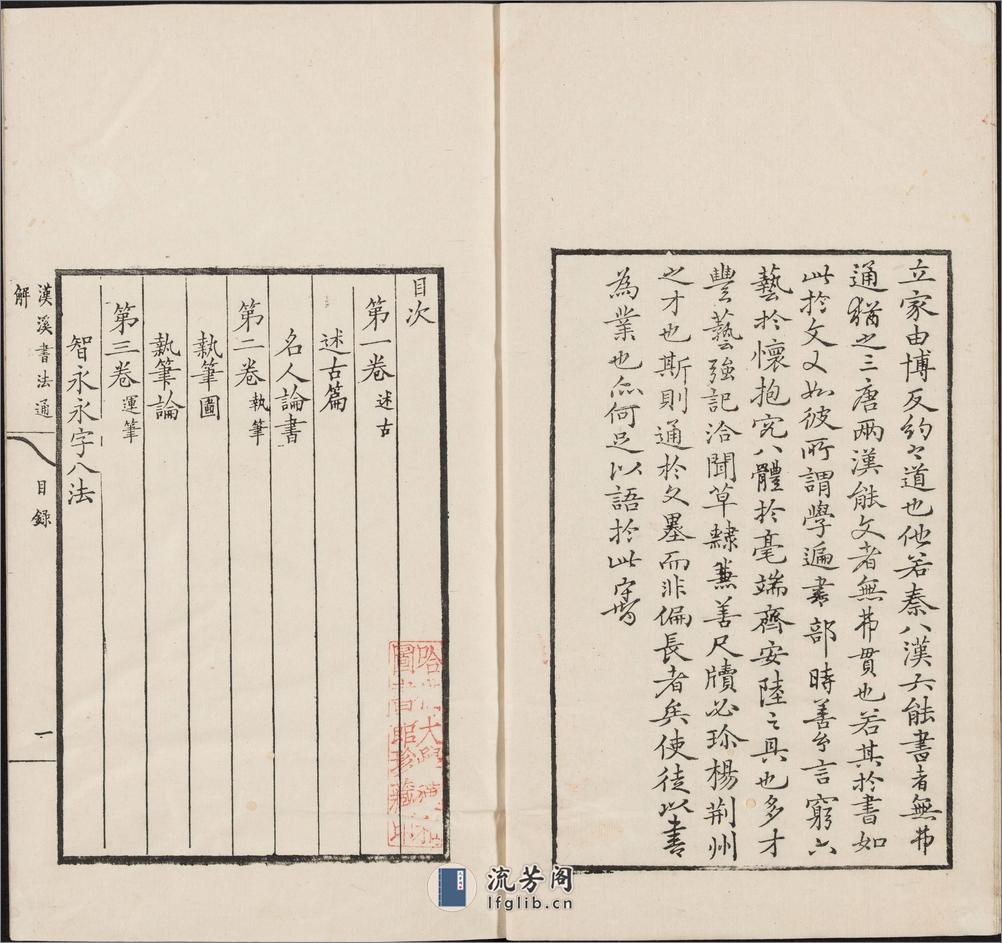 立家由博反約之道也他若秦八漢六能書者無弗
通猶之三唐兩漢能文者無弗貫也若其於書如
此於文又如彼所謂學遍書部時善微言窮六
藝於懷抱究八體於毫端齊安陸之具也多才
豐藝強記洽聞草隸兼善尺牘必珍楊荊州
之才也斯則通於文墨而非偏長者矣使徒以書
為業也亦何足以語於此
目次
第一卷 述古
述古篇
名人論書
第二卷 執筆
執筆圖
執筆論
第三卷 運筆
智永永字八法
漢溪書法通解
目錄
一
哈佛大學
圖書館珍藏印
流芳阁
lfglib.cn